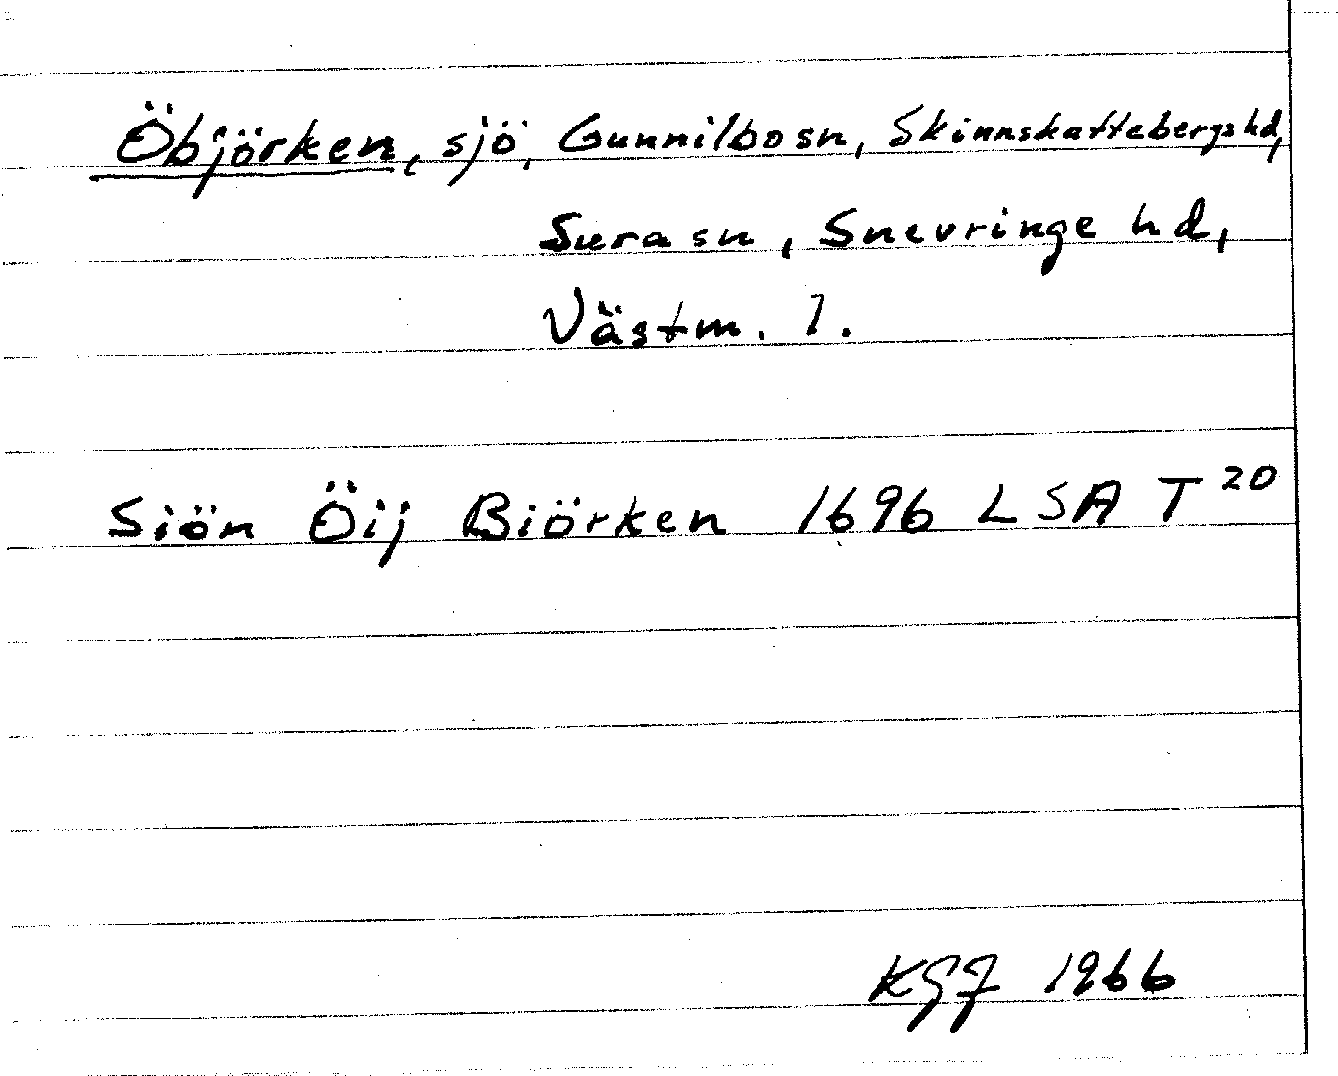 Öbjörken, sjö, Gunnilbo sn, Skinnskattebergs hd,
Sura sn, Snevringe hd,
Västm. l.
Siön Öij Biörken 1696 LSA T 20
KGJ 1966